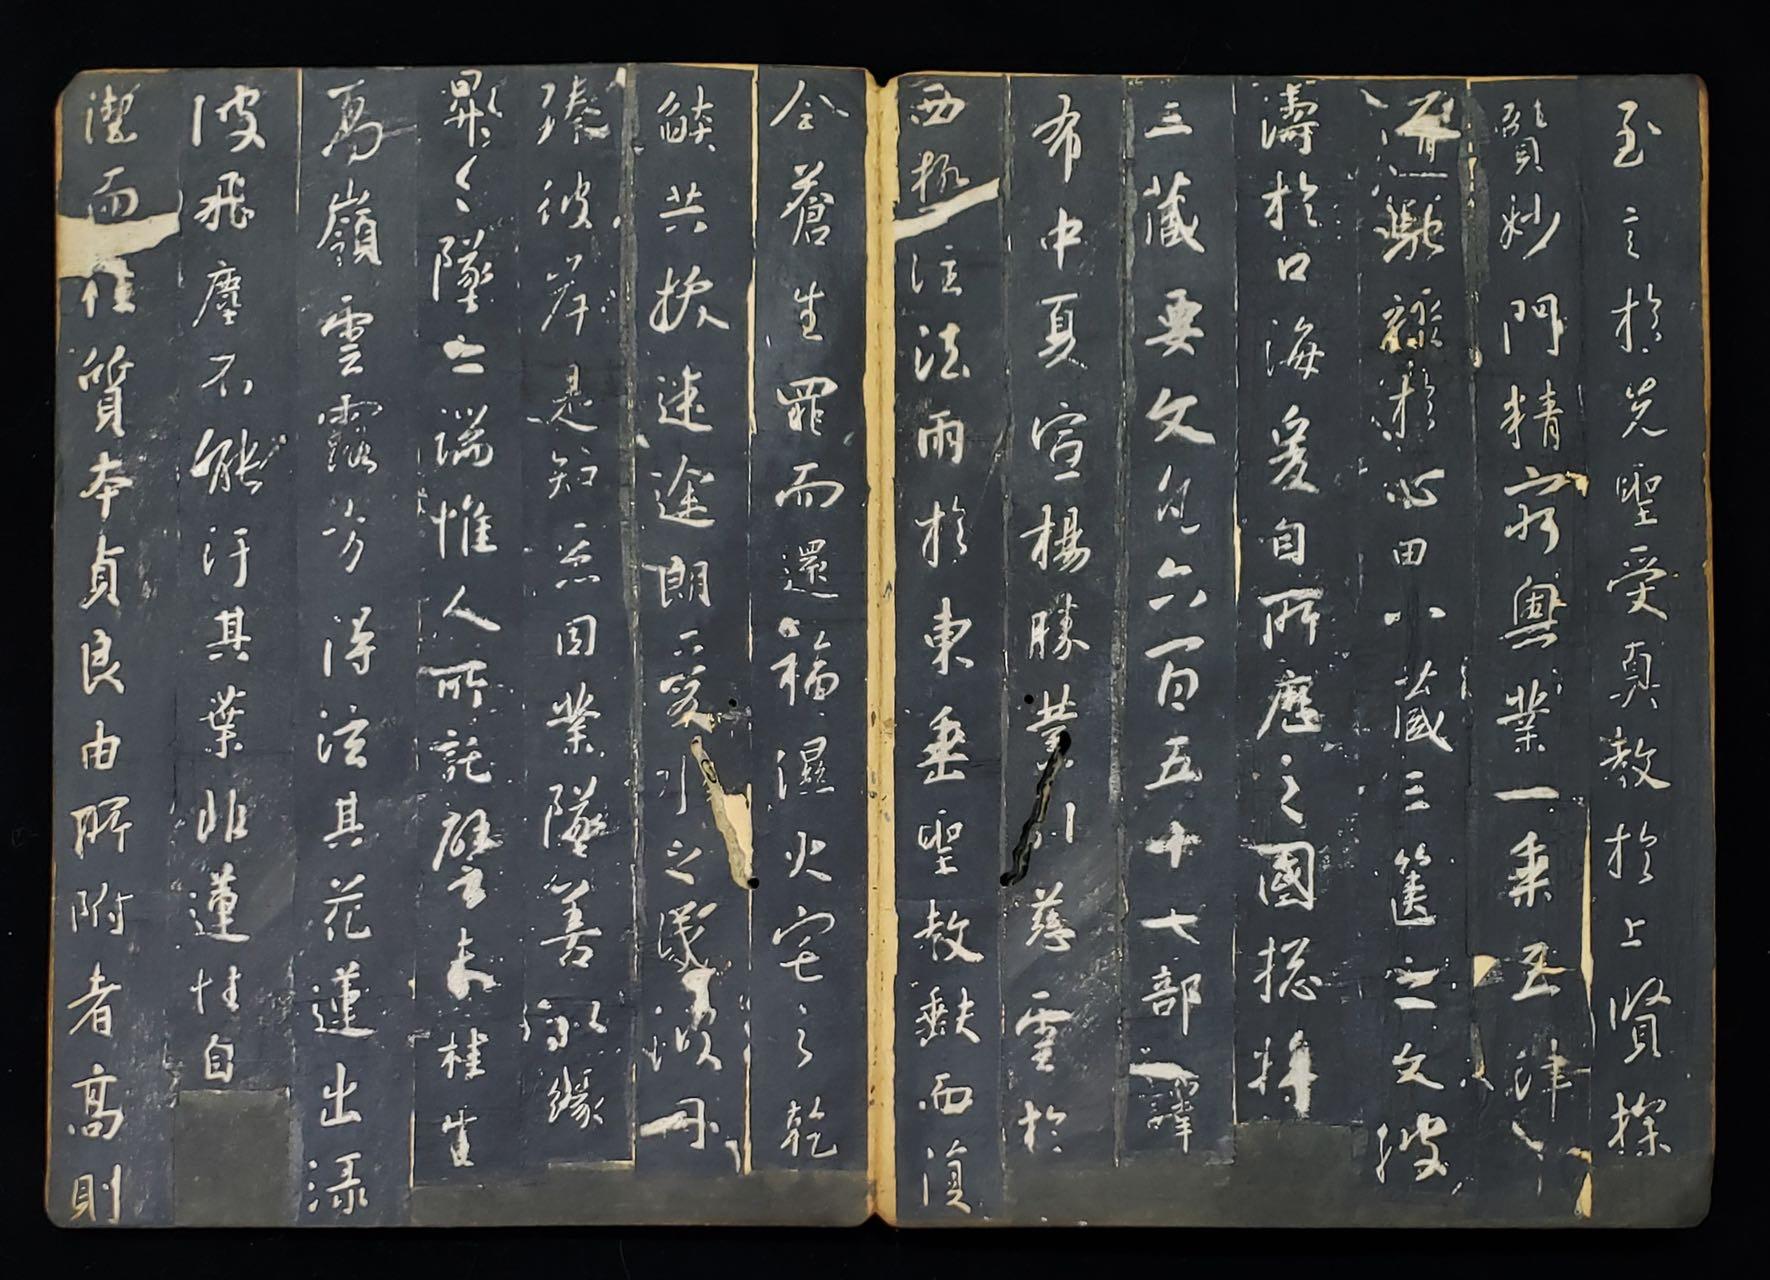 至言於先聖受真教於上賢探
賾妙門精窮奧業一乘五律
道馳驟於心田八藏三篋之文波
濤於口海爰自所歷之國摠將
三藏要文凡六百五十七部譯
布中夏宣揚勝業引慈雲於
西極注法雨於東垂聖教缺而復
全蒼生罪而還福濕火宅之乾
燄共拔迷途朗愛水之昏波同
臻彼岸是知惡因業墜善以緣
昇々墜之端惟人所託譬夫桂生
高嶺雲露方得泫其花蓮出淥
波飛塵不能汙其葉非蓮性自
潔而桂質本貞良由所附者高則